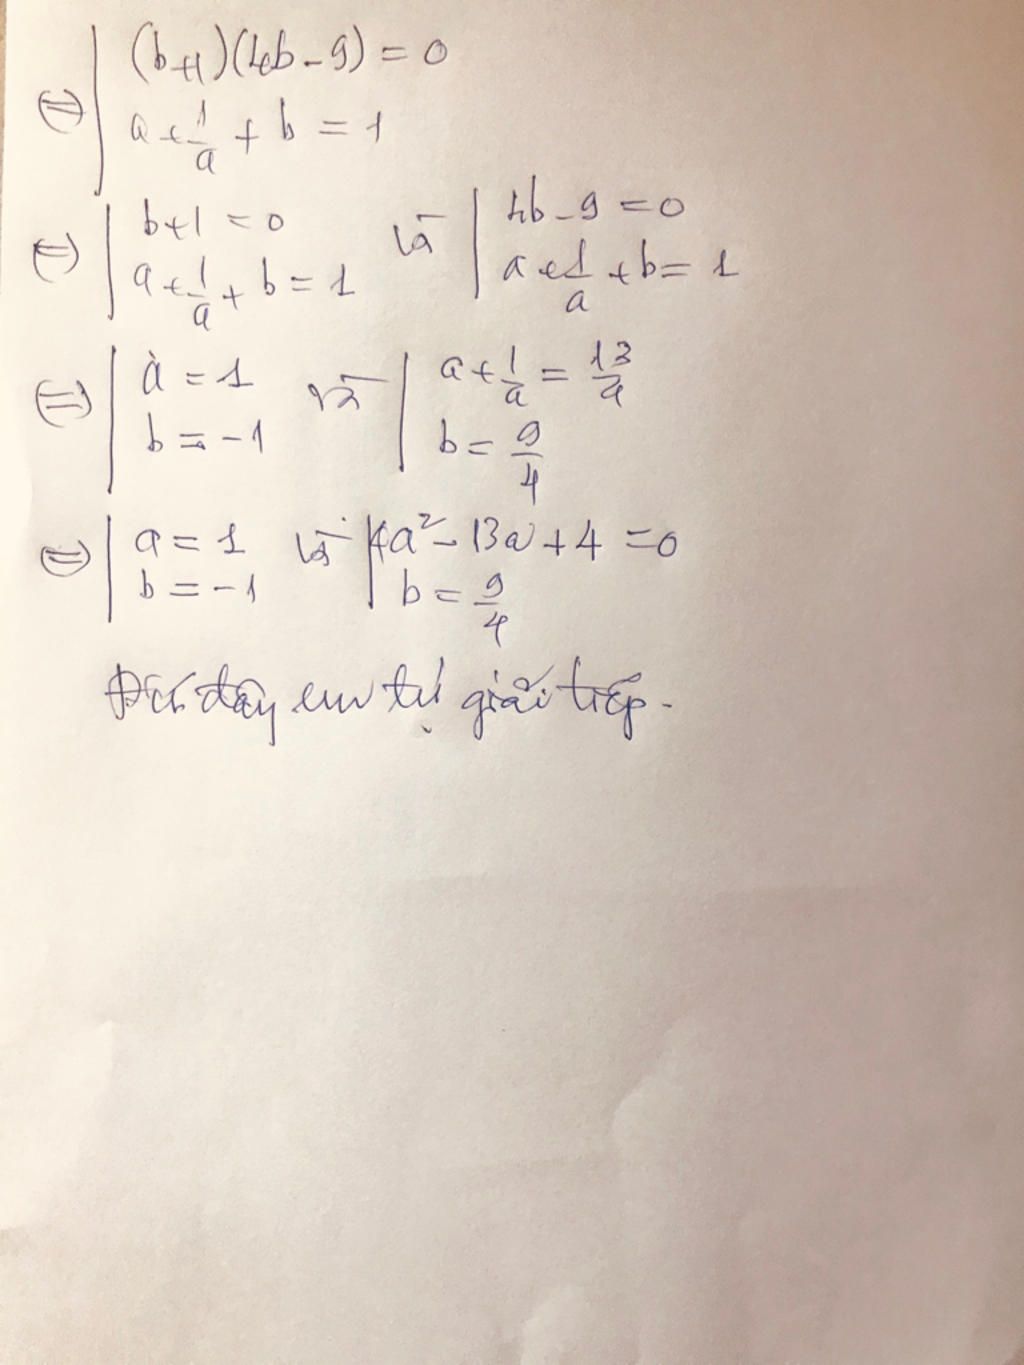 (b+1)(4b-9) = 0
⇔ a + 1/a + b = 1
b+1 = 0 và 4b-9 = 0
⇔ a + 1/a + b = 1 a + 1/a + b = 1
⇔ a = 1 và a + 1/a = 13/4
b = -1 b = 9/4
⇔ a = 1 và 4a² - 13a + 4 = 0
b = -1 b = 9/4
Đến đây em tự giải tiếp.